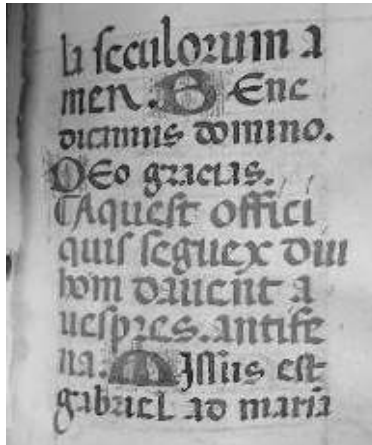 la seculorum a
men. BEne
dicamus domino.
DEo gracias.
Aquest offici
quis seguex diu
hom dauent a
uespres. antife
na. MIssus est
gabriel ad maria